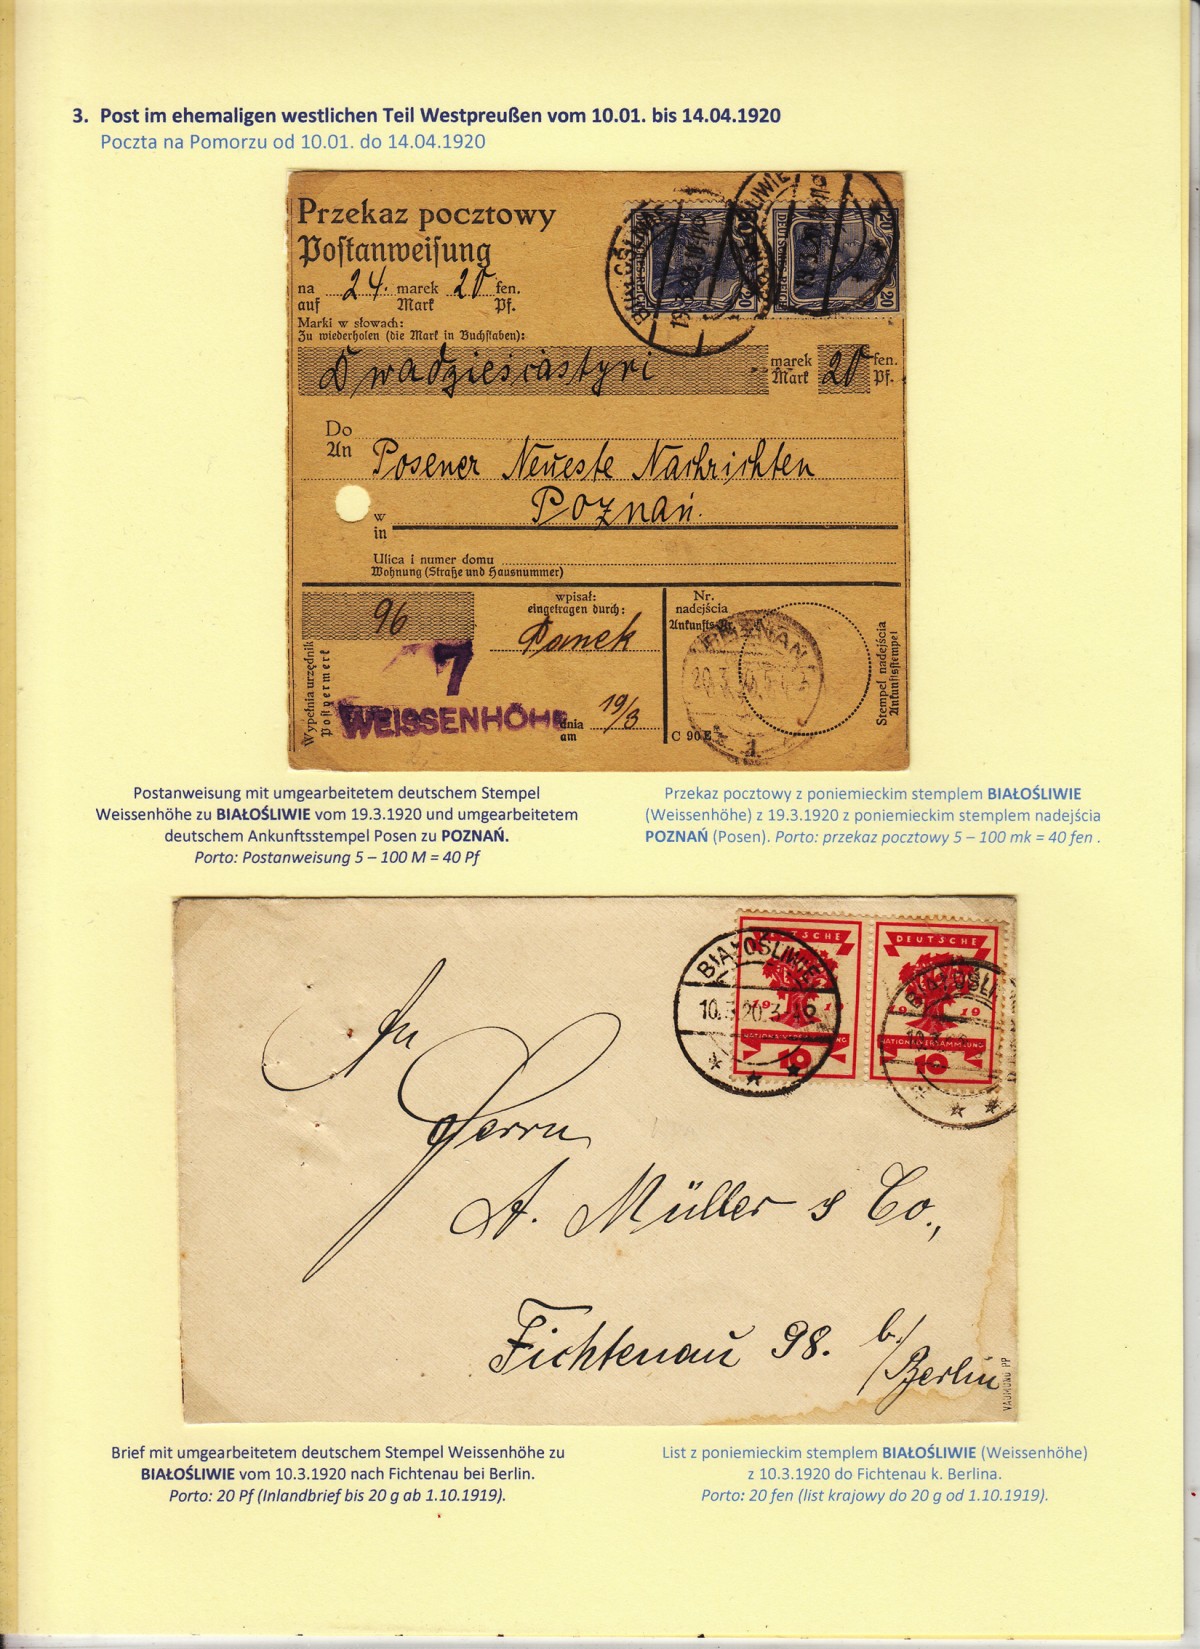 3. Post im ehemaligen westlichen Teil Westpreußen vom 10.01. bis 14.04.1920
Poczta na Pomorzu od 10.01. do 14.04.1920
Przekaz pocztowy
Postanweisung
na 24. marek 20 fen.
auf Mark Pf.
Marki w słowach:
Zu wiederholen (die Mark in Buchstaben):
Dwadzieściastyri marek 20 fen.
Mark Pf.
BIAŁOŚLIWIE
19.3.20
BIAŁOŚLIWIE
19.3.20
DEUTSCHES REICH
20
DEUTSCHES REICH
20 20
Do
An
Posener Neueste Nachrichten
Poznań.
w
in
Ulica i numer domu
Wohnung (Straße und Hausnummer)
96
wpisał:
eingetragen durch:
Panek
Nr.
nadejścia
Ankunfts-Nr.
Wypełnia urzędnik
Postvermerk
7
WEISSENHÖHE
dnia
am
19/3
C 90E
POZNAŃ
20.3.
1
Stempel nadejścia
Ankunftsstempel
Postanweisung mit umgearbeitetem deutschem Stempel
Weissenhöhe zu BIAŁOŚLIWIE vom 19.3.1920 und umgearbeitetem
deutschem Ankunftsstempel Posen zu POZNAŃ.
Porto: Postanweisung 5 – 100 M = 40 Pf
Przekaz pocztowy z poniemieckim stemplem BIAŁOŚLIWIE
(Weissenhöhe) z 19.3.1920 z poniemieckim stemplem nadejścia
POZNAŃ (Posen). Porto: przekaz pocztowy 5 – 100 mk = 40 fen .
BIAŁOŚLIWIE
10.3.20.3-4
DEUTSCHE
1919
NATIONALVERSAMMLUNG
10
DEUTSCHE
1919
NATIONALVERSAMMLUNG
10
BIAŁOŚLI
An
Herrn
A. Müller & Co.,
Fichtenau 98. b/
Berlin
VAURUNO PP
Brief mit umgearbeitetem deutschem Stempel Weissenhöhe zu
BIAŁOŚLIWIE vom 10.3.1920 nach Fichtenau bei Berlin.
Porto: 20 Pf (Inlandbrief bis 20 g ab 1.10.1919).
List z poniemieckim stemplem BIAŁOŚLIWIE (Weissenhöhe)
z 10.3.1920 do Fichtenau k. Berlina.
Porto: 20 fen (list krajowy do 20 g od 1.10.1919).